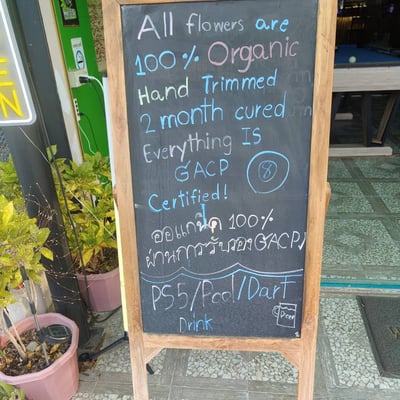 All flowers are
100% Organic
Hand Trimmed
2 month cured
Everything IS
GACP
Certified!
ออแกนิค 100%
ผ่านการรับรองGACP/
PS5/Pool/Dart
Drink
Beer